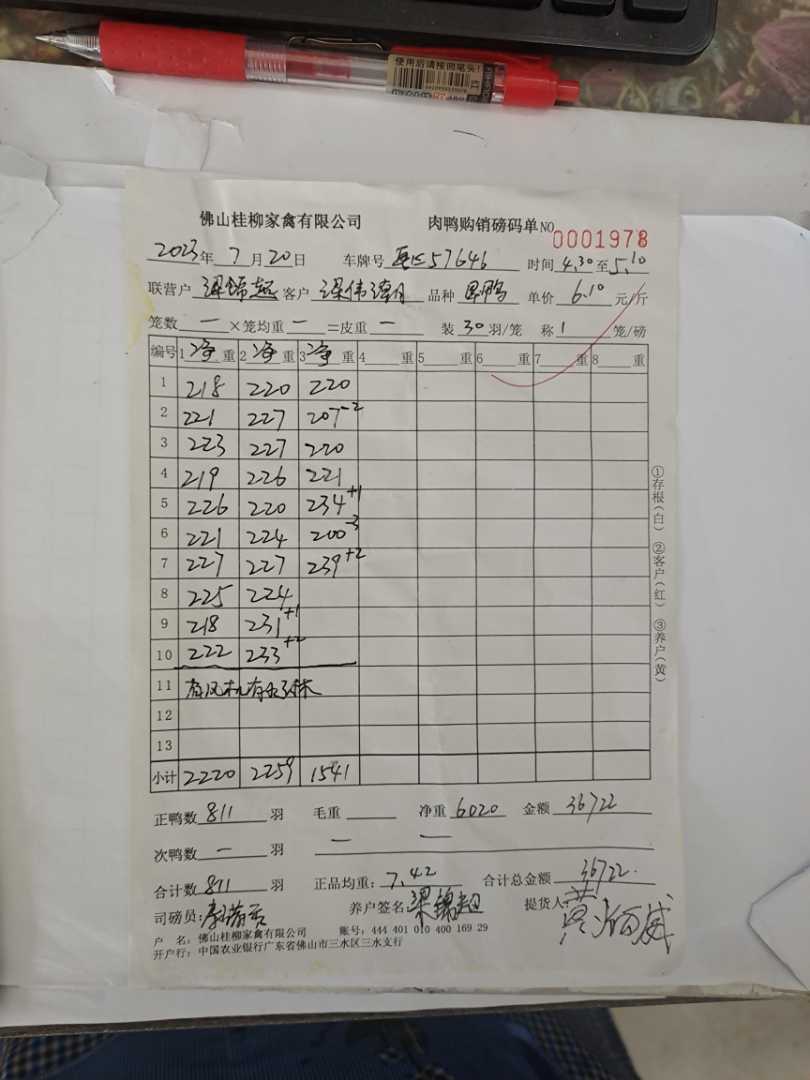 使用后请按回笔头!
佛山桂柳家禽有限公司 肉鸭购销磅码单 NO 0001978
2023年 7月20日 车牌号 57646 时间 4.30至5.10
联营户 梁锦超 客户 梁伟 品种 鸭 单价 6.10 元/斤
笼数 一 ×笼均重 一 =皮重 一 装 30 羽/笼 称 1 笼/磅
编号 1 净 重 2 净 重 3 净 重 4 重 5 重 6 重 7 重 8 重
1 218 220 220
2 221 227 207 -2
3 223 227 220
4 219 226 221
5 226 220 234 +1
6 221 224 200 -3
7 227 227 239 +2
8 225 224
9 218 231 +1
10 222 233 +2
11 有风机有
12
13
小计 2220 2259 1541
正鸭数 811 羽 毛重 净重 6020 金额 36722
次鸭数 一 羽 一 一
合计数 811 羽 正品均重: 7.42 合计总金额 36722.
司磅员: 养户签名 梁锦超 提货人 黄 威
户 名: 佛山桂柳家禽有限公司 账号: 444 401 010 400 169 29
开户行: 中国农业银行广东省佛山市三水区三水支行
①存根(白) ②客户(红) ③养户(黄)